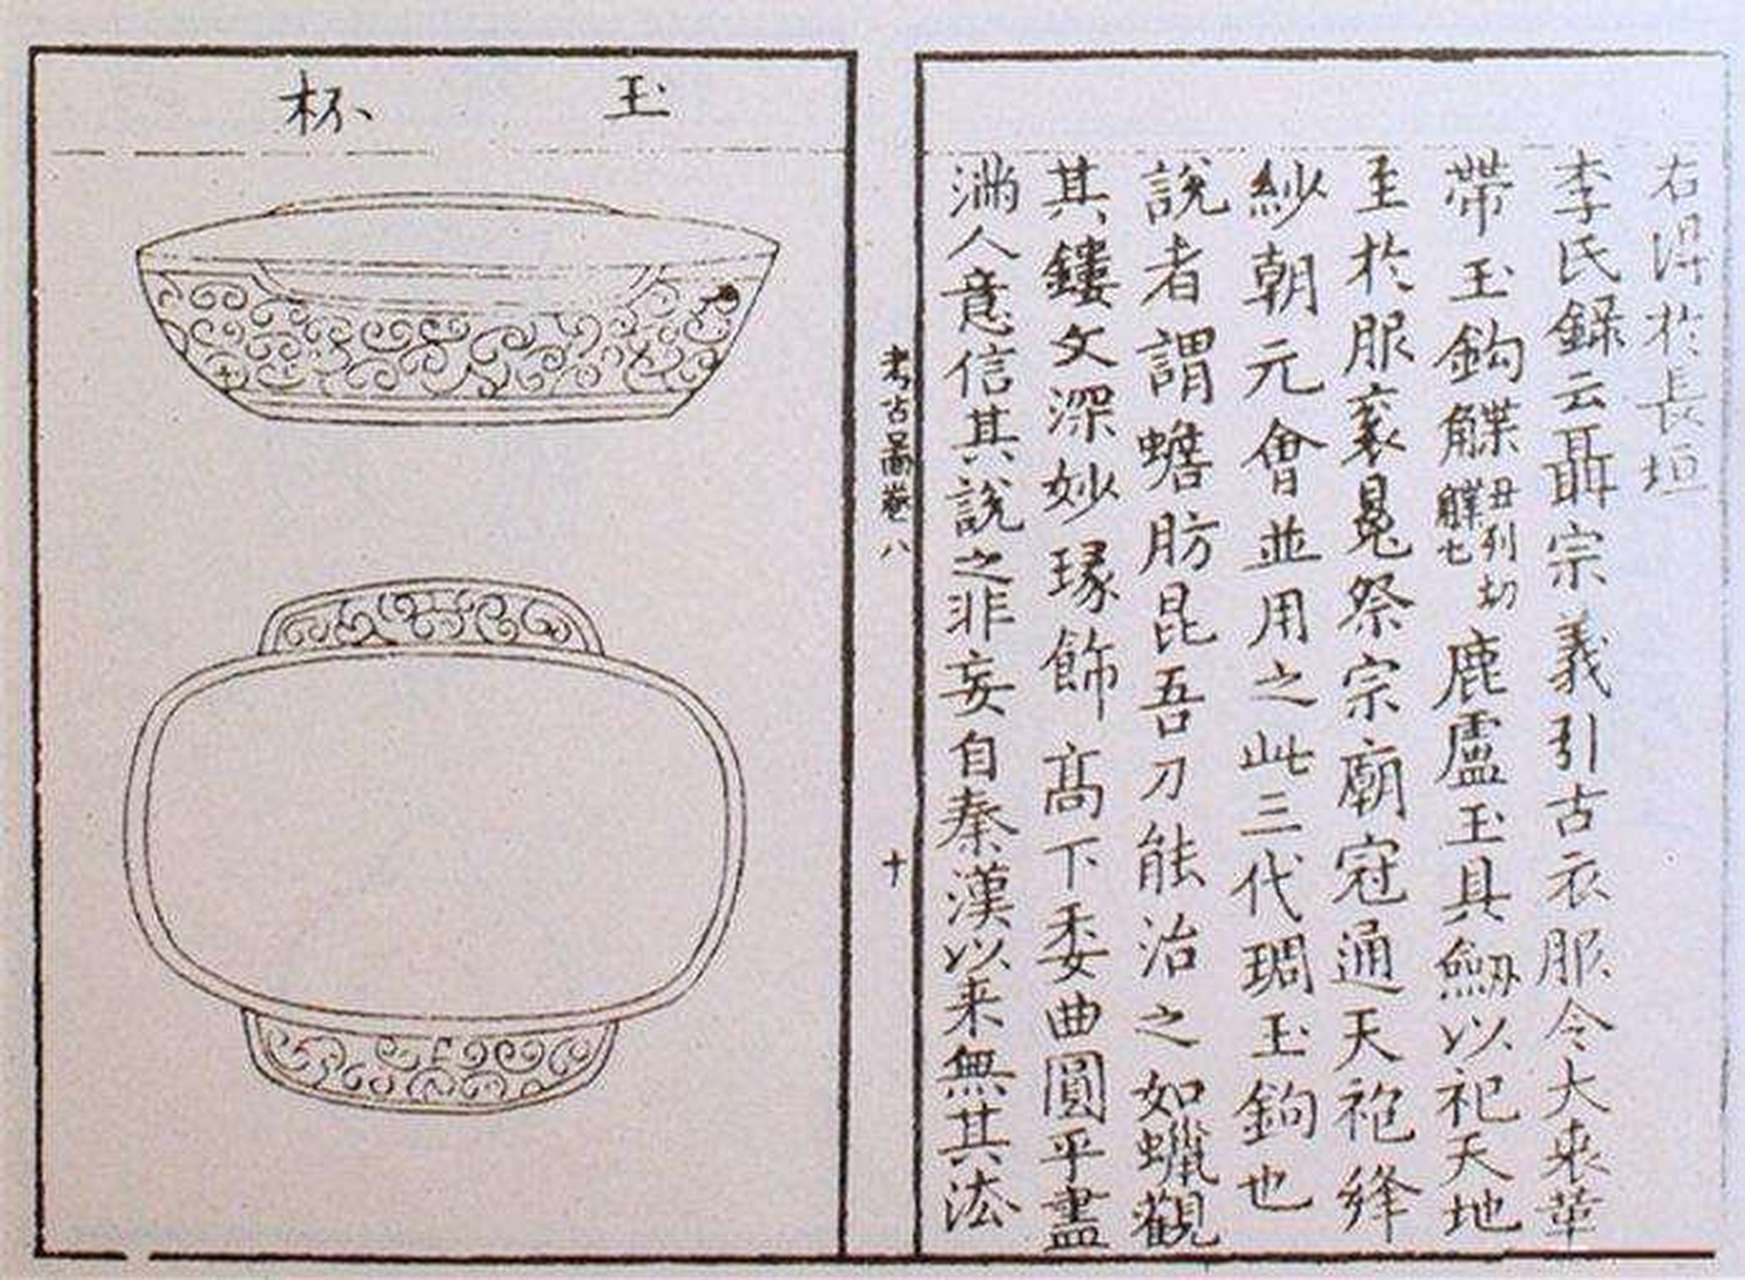 右得於長垣
李氏錄云聶宗義引古衣服令大夾革
帶玉鈎䚢丑列切鹿盧玉具劒以祀天地
至於服袞冕祭宗廟冠通天袍絳
紗朝元會並用之此三代琱玉鉤也
說者謂蟾肪昆吾刀能治之如蠟觀
其鏤文深妙瑑飾高下委曲圓平盡
滿人意信其說之非妄自秦漢以来無其法
考古圖卷八
十
玉杯